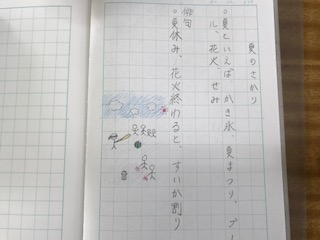 夏のさかり
○夏といえばかき氷、夏まつり、プー
ル、花火、せみ
俳句
○夏休み、花火終わると、すいか割り